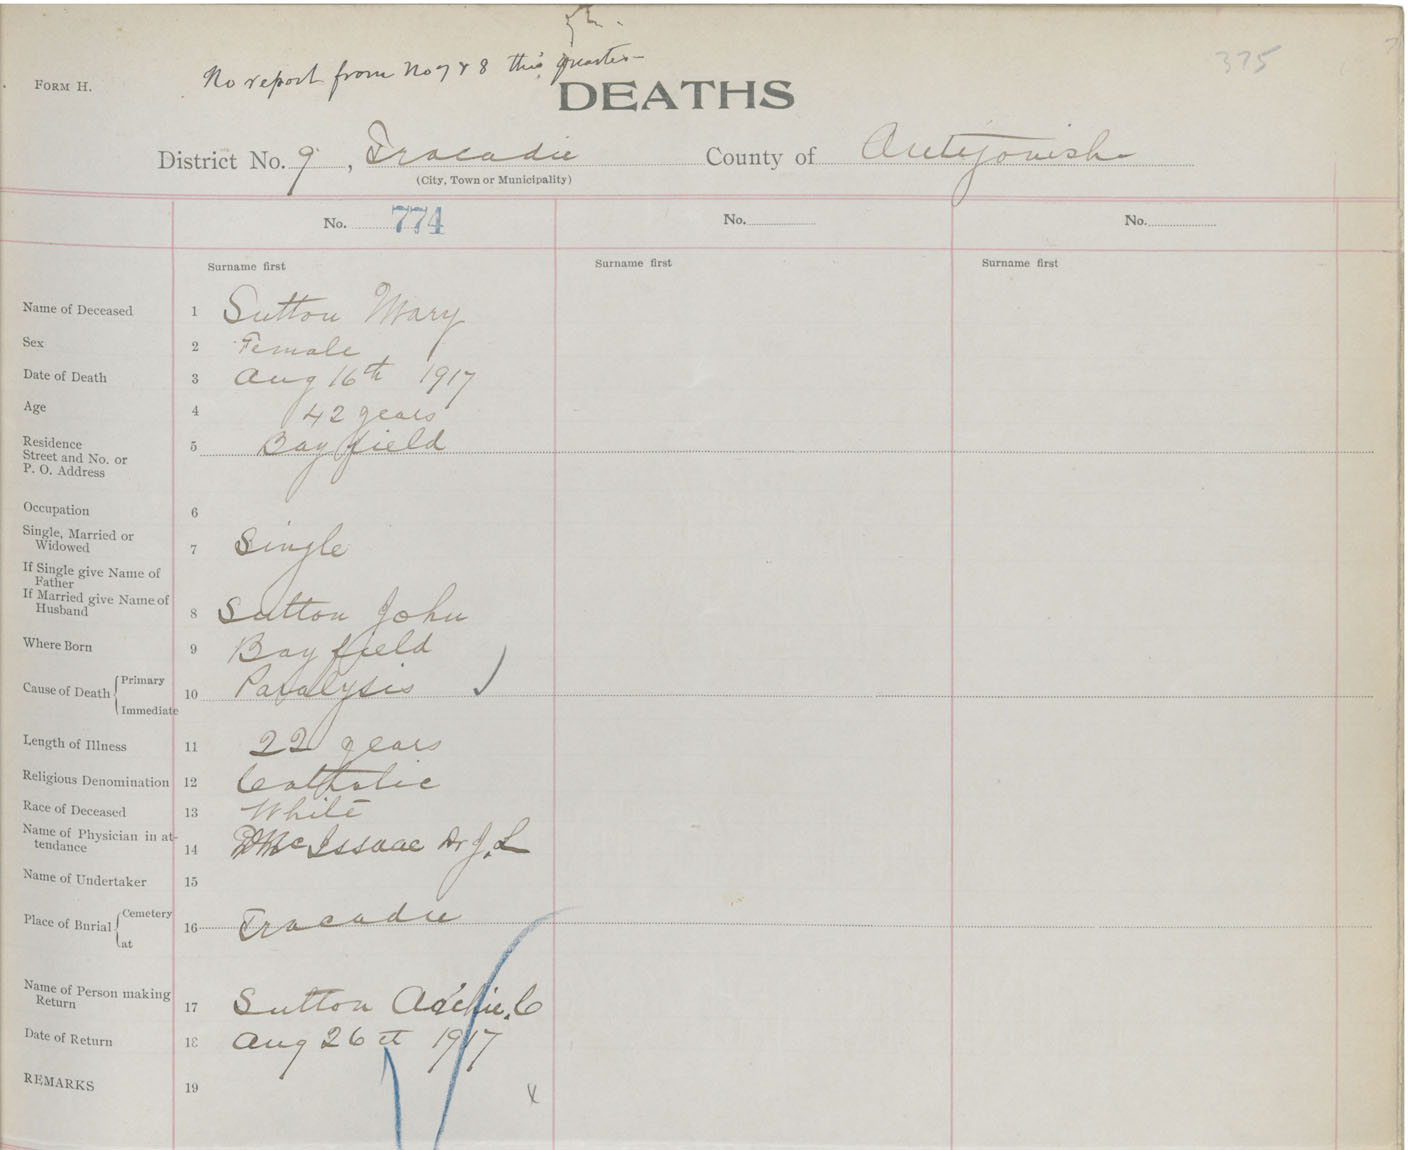 375
No report from No 7 & 8 this quarter
FORM H.
DEATHS
District No. 9, Tracadie County of Antigonish
(City, Town or Municipality)
No. 774 No. No.
Surname first Surname first Surname first
Name of Deceased 1 Sutton Mary
Sex 2 Female
Date of Death 3 Aug 16th 1917
Age 4 42 years
Residence
Street and No. or
P. O. Address 5 Bayfield
Occupation 6
Single, Married or
Widowed 7 Single
If Single give Name of
Father
If Married give Name of
Husband 8 Sutton John
Where Born 9 Bayfield
Cause of Death Primary
Immediate 10 Paralysis
Length of Illness 11 22 years
Religious Denomination 12 Catholic
Race of Deceased 13 White
Name of Physician in at-
tendance 14 McIssaac Dr J. L
Name of Undertaker 15
Place of Burial Cemetery
at 16 Tracadie
Name of Person making
Return 17 Sutton Archie. C
Date of Return 18 Aug 26 1917
REMARKS 19